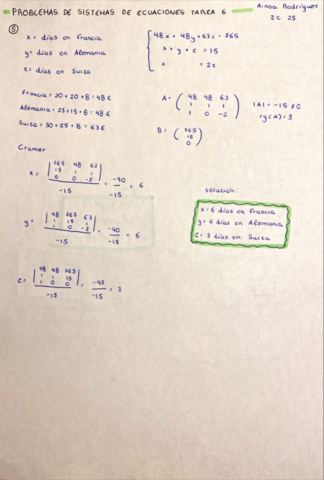 PROBLEMAS DE SISTEMAS DE ECUACIONES TAREA 6
Ainoa Rodríguez
2ºC 25
5
x = días en Francia
y = días en Alemania
z = días en Suiza
48x + 48y + 63z = 765
x + y + z = 15
x = 2z
Francia = 20 + 20 + 8 = 48 €
Alemania = 25 + 15 + 8 = 48 €
Suiza = 30 + 25 + 8 = 63 €
A = ( 48 48 63
1 1 1
1 0 -2 )
|A| = -15 ≠ 0
rg(A) = 3
B = ( 765
15
0 )
Cramer
x = | 765 48 63 |
15 1 1
0 0 -2
-15
= -90 / -15 = 6
y = | 48 765 63 |
1 15 1
1 0 -2
-15
= -90 / -15 = 6
z = | 48 48 765 |
1 1 15
1 0 0
-15
= -45 / -15 = 3
solución:
x = 6 días en Francia
y = 6 días en Alemania
z = 3 días en Suiza